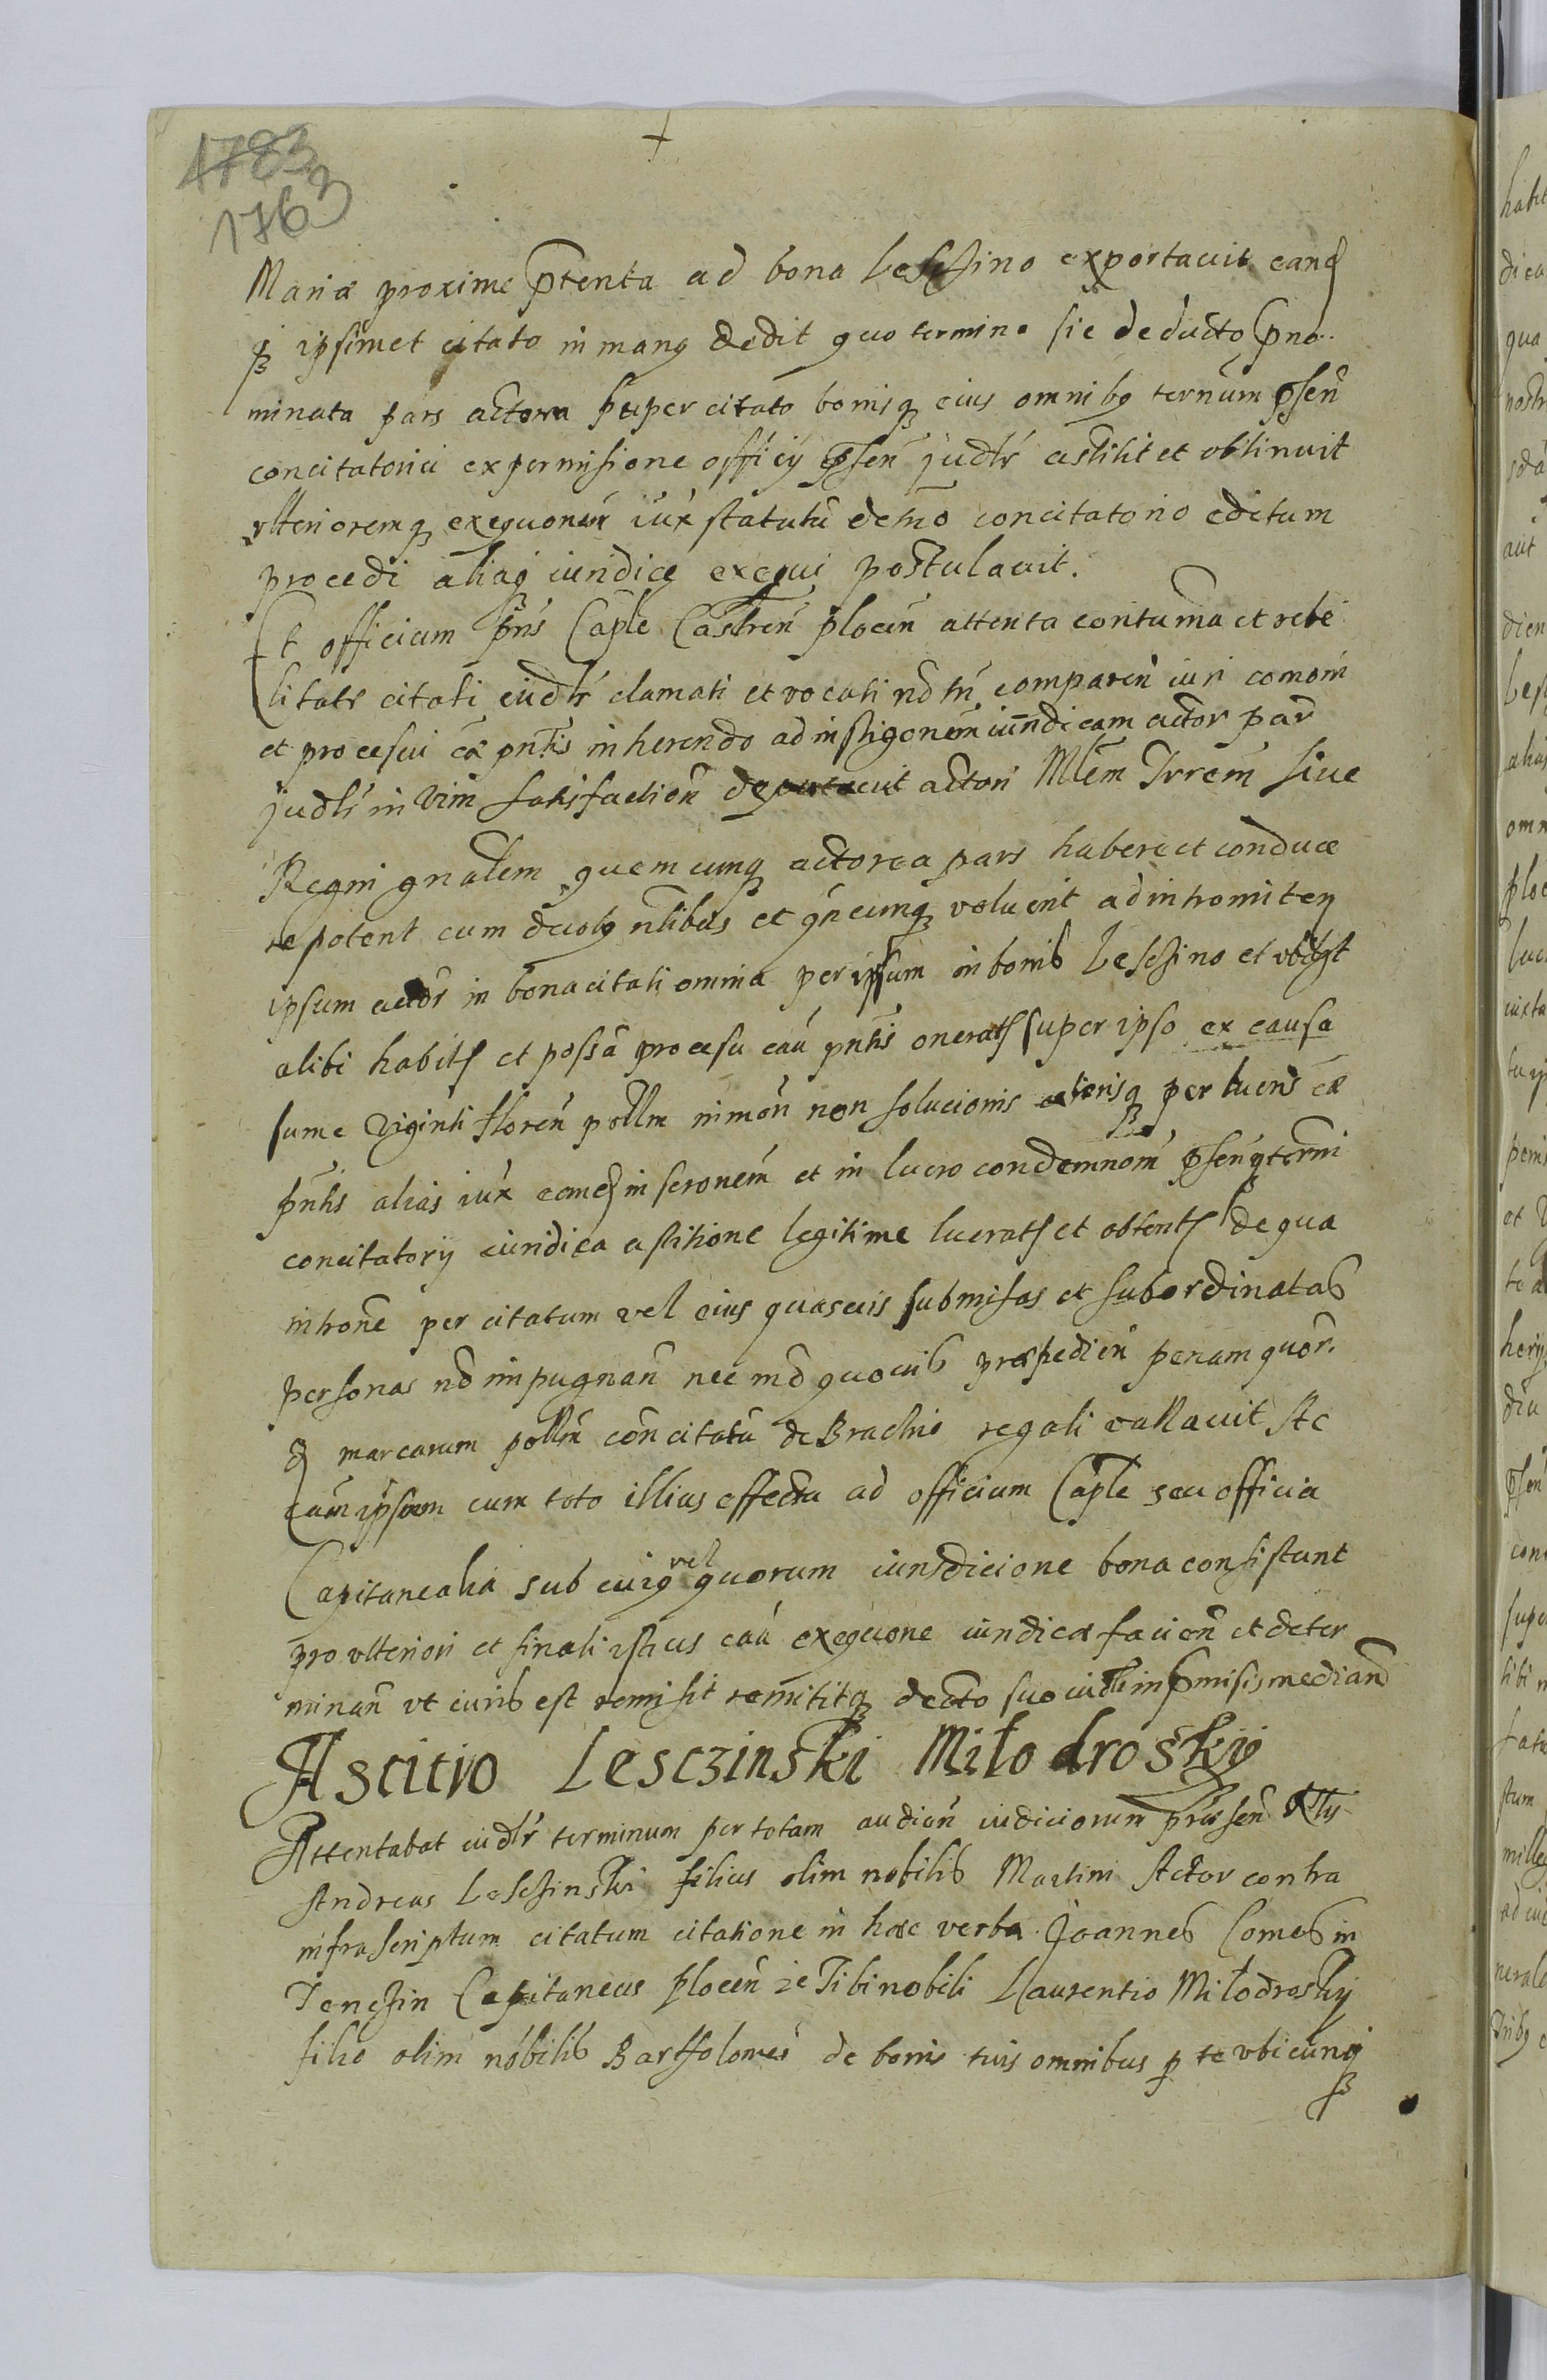 1783
1763
Mariæ proxime ptenta ad bona Lesczino exportauit eandē
q ipsimet citato in manq dedit quo termino sic deducto pno
minata pars actorea super citato bonisq eius omnibq ternum psen
concitatorii ex permisione officij psen judlr astitit et obtinuit
vlterioremq exequonem iux statutū de mo concitatorio editum
procedi aliaq iuridice exequi postulauit.
Et officium pns Caple Castren plocen attenta contuma et rebe
litate citati iudlr clamati et vocati nd tn comparen iuri comom
et procesui cæ pntis inherendo ad instigonem iuridicam actor par
judlr in vim satisfaction actori Mlem Trrem siue
Regni gnalem quemcunq actorea pars habere et conduce
re potent cum duobq nlibus et qncunq voluerit ad intromitten
ipsum actor in bona citati omnia per ipsum in bonis Lesczino et vbiqt
alibi habits et possa procesu cau pntis onerats super ipso ex causa
sume viginti floren pollm nimon non solucionis alterisq per luens cæ
pntis alias iux eand inseronem et in lucro condemnom psenq termi
concitatorij iuridica astitione legitime lucrats et obtents de qua
introne per citatum vel eius quasuis submisas et subordinatas
personas nd impugnan nec md quouis præpedien penam quor.
q marcarum pollm concitatū de Brachio regali vallauit Ac
Cam ipsam cum toto illius effectu ad officium Caple seu officia
Capitanealia sub cuiq vel quorum iurisdicione bona consistunt
pro vlteriori et finali istius cau exequone iuridica facien et deter
minan vt iuris est remisit remititq decto suo iudli in pmisis median
Ascitio Lesczinski Miłodroskÿ
Attentabat iudlr terminum per totam audien iudiciorum prissen
Andreas Lesczinski filius olim nobilis Martini Actor contra
infrascriptum citatum citatione in hæc verba Joannes Comes in
Tenczin Capitaneus plocen zc Tibi nobili Laurentio Miłodroskÿ
filio olim nobilis Bartholomei de bonis tuis omnibus p te vbicunq